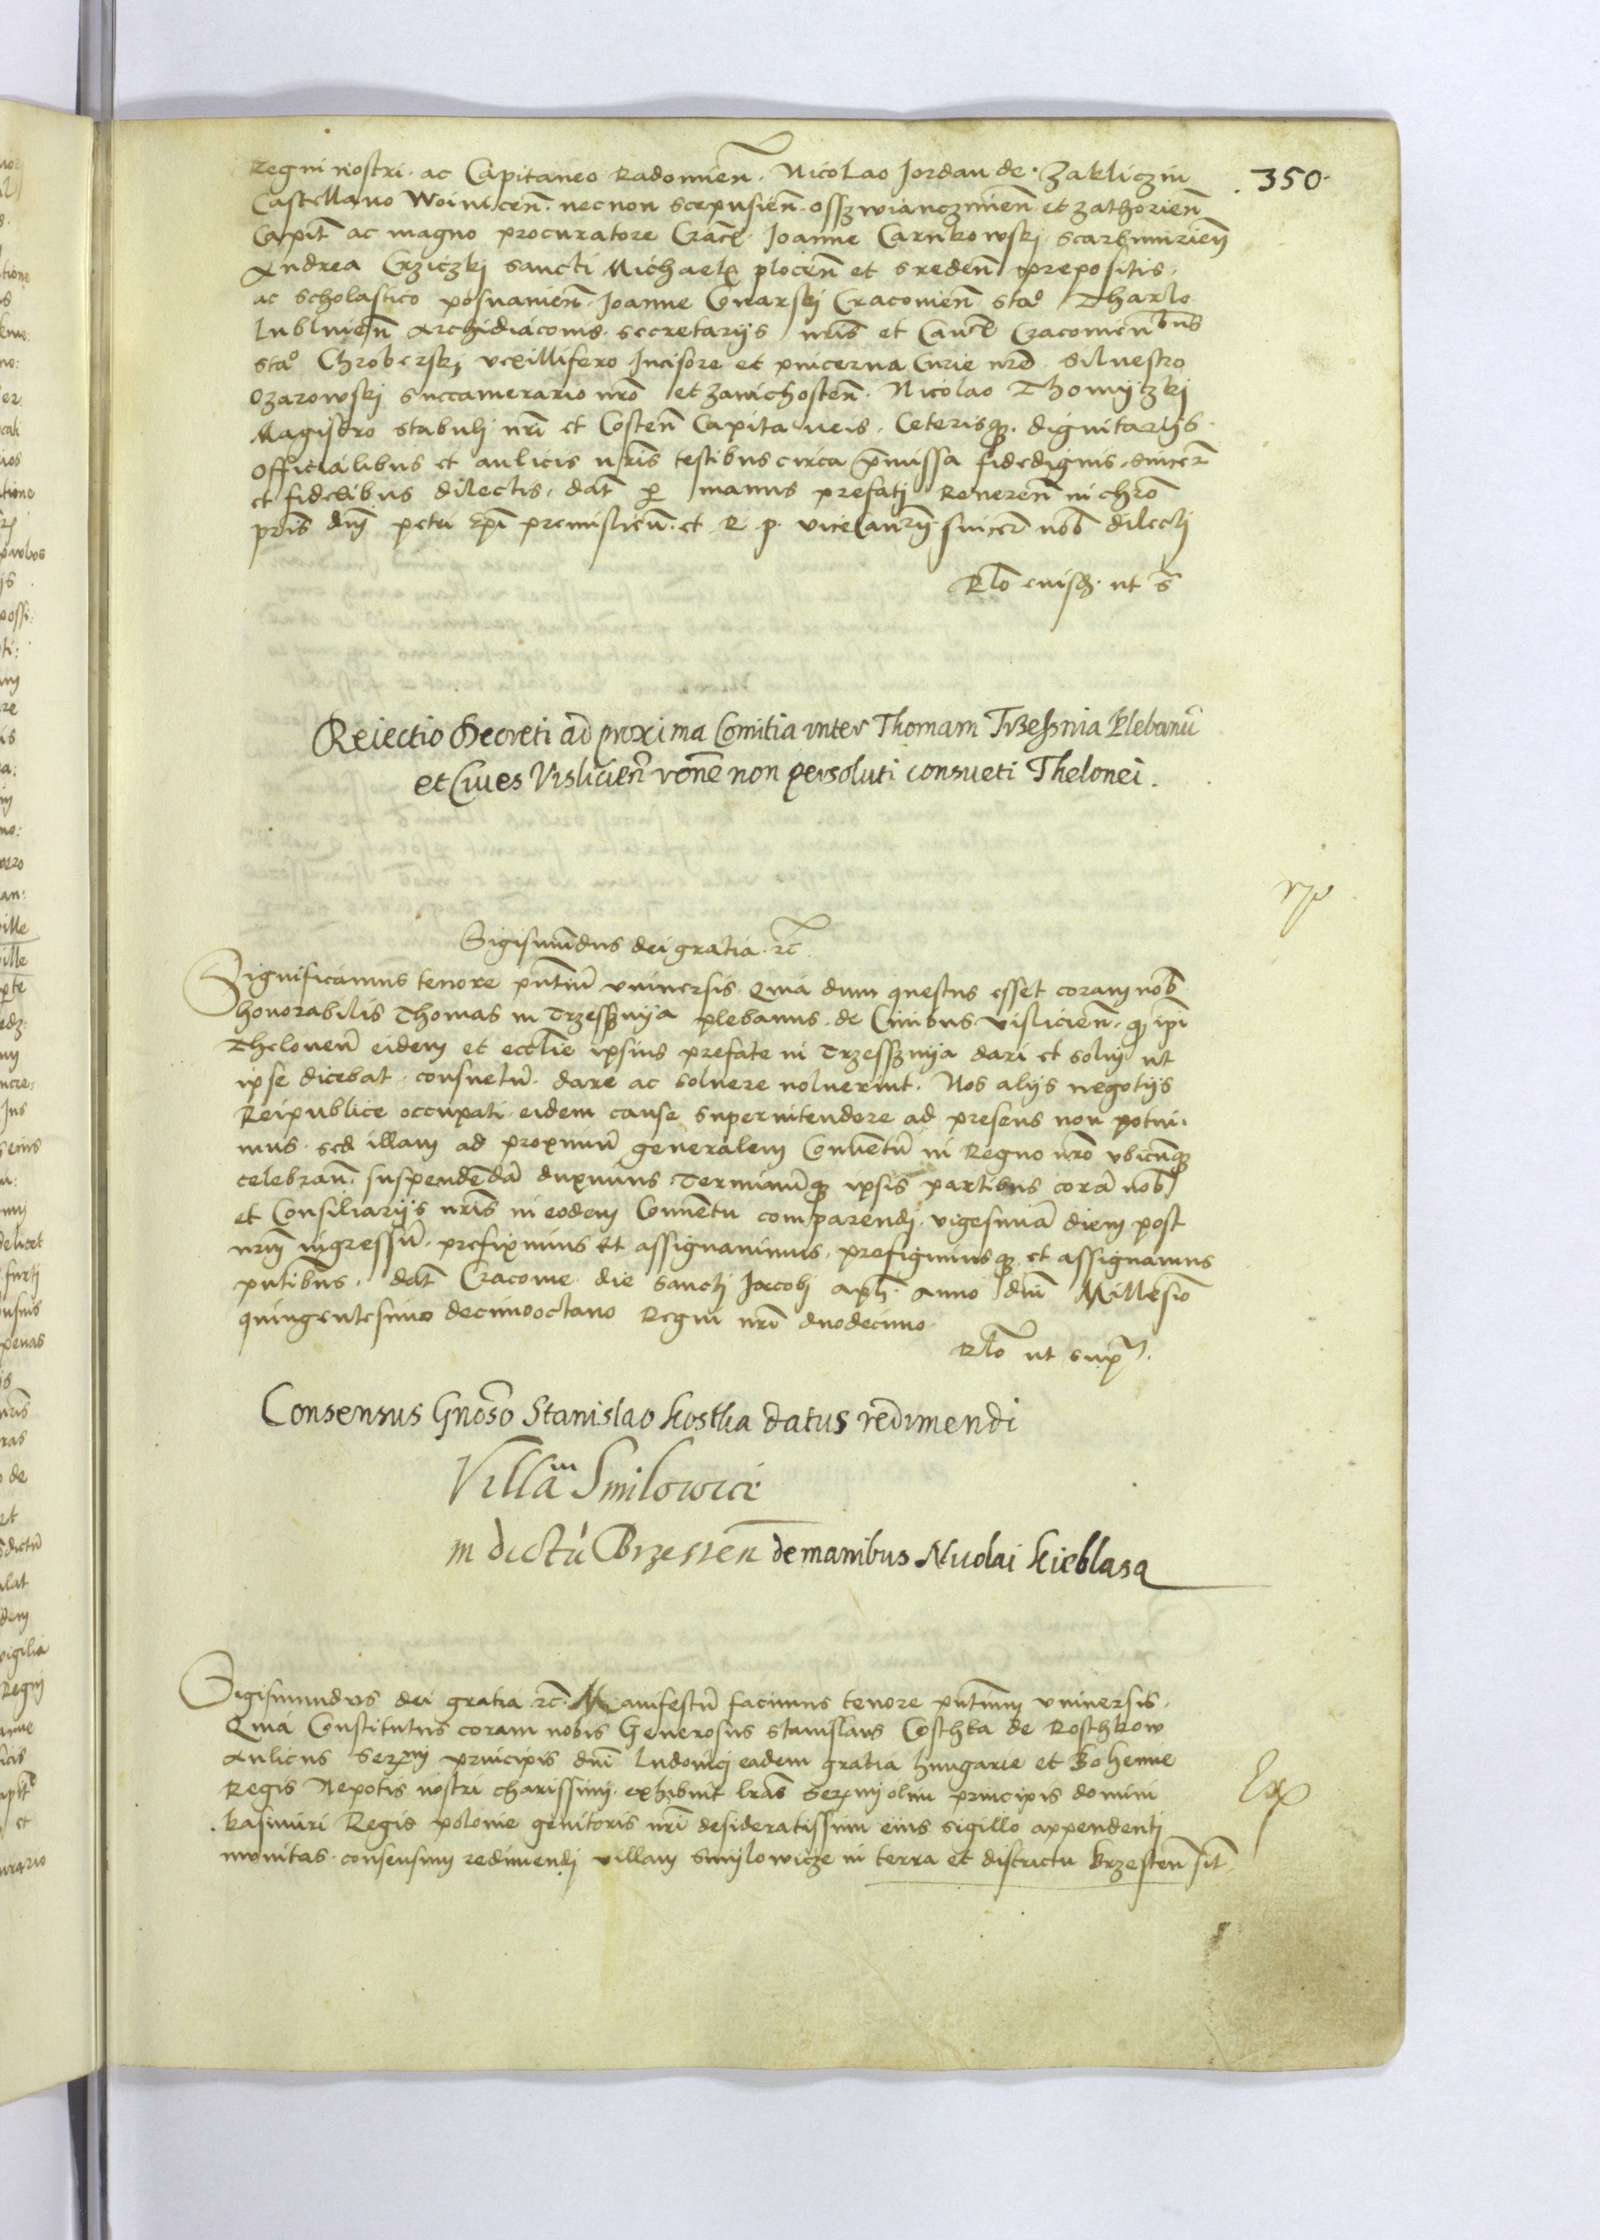 350
Regni nostri ac Capitaneo Radomien. Nicolao Jordan de Zakliczin
Castellano Woinicen. necnon scepusien. osszwianczimen et zathorien
Capit ac magno procuratore Crac. Joanne Carnkowskj scarbimirien
Andrea Crziczkj sancti Michaelis plocen et sreden prepositis
ac scholastico posnanien. Joanne Conarskj Cracovien sta Tharlo
lublinien Archidiaconis secretarijs nris et Cracovien
sta Chroberskj vexillifero Incisore et pincerna Curie nre Silvestro
Ozarowskj succamerario nro et zawichosten. Nicolao Thomijczkj
Magistro stabulj nri et Costen Capitaneis. Ceterisque dignitarijs
officialibus et aulicis nris testibus circa pmissa fidedignis sincer
et fidelibus dilectis. dat p manus prefatj Reveren in chro
pris dnj petri epi premislien. et R. p. vicecancrij sincer nob dilectj
Rlo eiusd. ut s
Reiectio Decreti ad proxima Comitia inter Thomam Trzessnia Plebanu
et Cives Vislicien rone non persoluti consueti Thelonei.
Sigismundus dei gratia rc
Significamus tenore pntiu universis. Quia dum questus esset coram nob
honorabilis Thomas in Trzesschnija plebanus de Civibus vislicien. q ipi
Theloneu eidem et ecclie ipsius prefate in Trzesschnija dari et solvj ut
ipse dicebat consuetu. dare ac solvere noluerint. Nos alijs negotijs
Reipublice occupati eidem cause superintendere ad presens non potui
mus. sed illam ad proximu generalem Conventu in Regno nro ubicunque
celebran. suspendenda duximus. Terminuque ipsis partibus cora nob
et Consiliarijs nris in eodem Conventu comparendj vigesima diem post
nrm ingressu. prefiximus et assignavimus. prefigimusque et assignamus
pntibus. dat Cracovie die sanctj Jacobj apli. anno dni Millesio
quingentesimo decimooctavo Regni nri duodecimo
Rlo ut sup
Consensus Gnoso Stanislao kostka datus redimendi
Villam Smilowice
in dictu Brzesten de manibus Nicolai kieblasa
Sigismundus dei gratia rc. Manifestu facimus tenore pntium universis.
Quia Constitutus coram nobis Generosus Stanislaus Coschka de Roschkow
Aulicus Sermj principis dni ludovicj eadem gratia hungarie et Bohemie
Regis Nepotis nostri charissimj exhibuit lras Sermj olim principis domini
kasimiri Regis polonie genitoris nri desideratissimi eius sigillo appendenti
munitas. consensum redimendj villam Smijlowicze in terra et districtu Brzesten sit